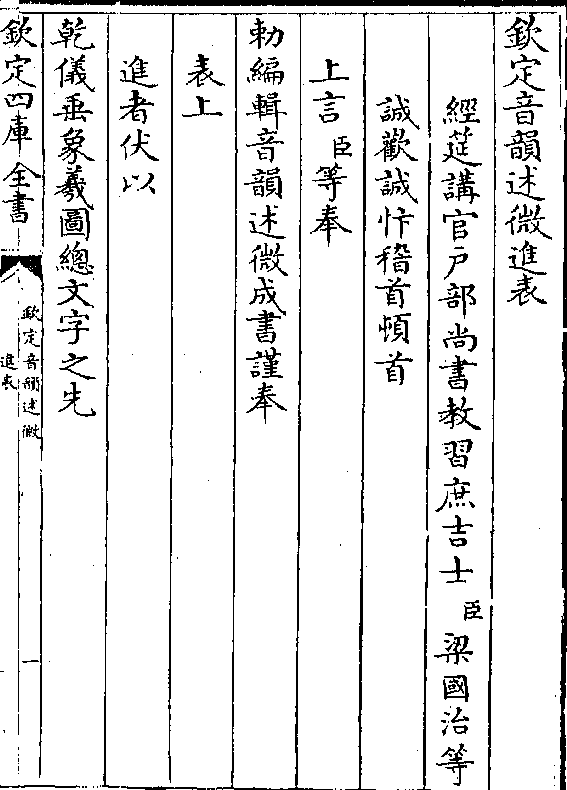 欽定音韻述微進表
經筵講官戶部尚書教習庶吉士臣梁國治等
誠歡誠忭稽首頓首
上言臣等奉
勅編輯音韻述微成書謹奉
表上
進者伏以
乾儀垂象羲圖總文字之先
欽定四庫全書
欽定音韻述微
進表
一